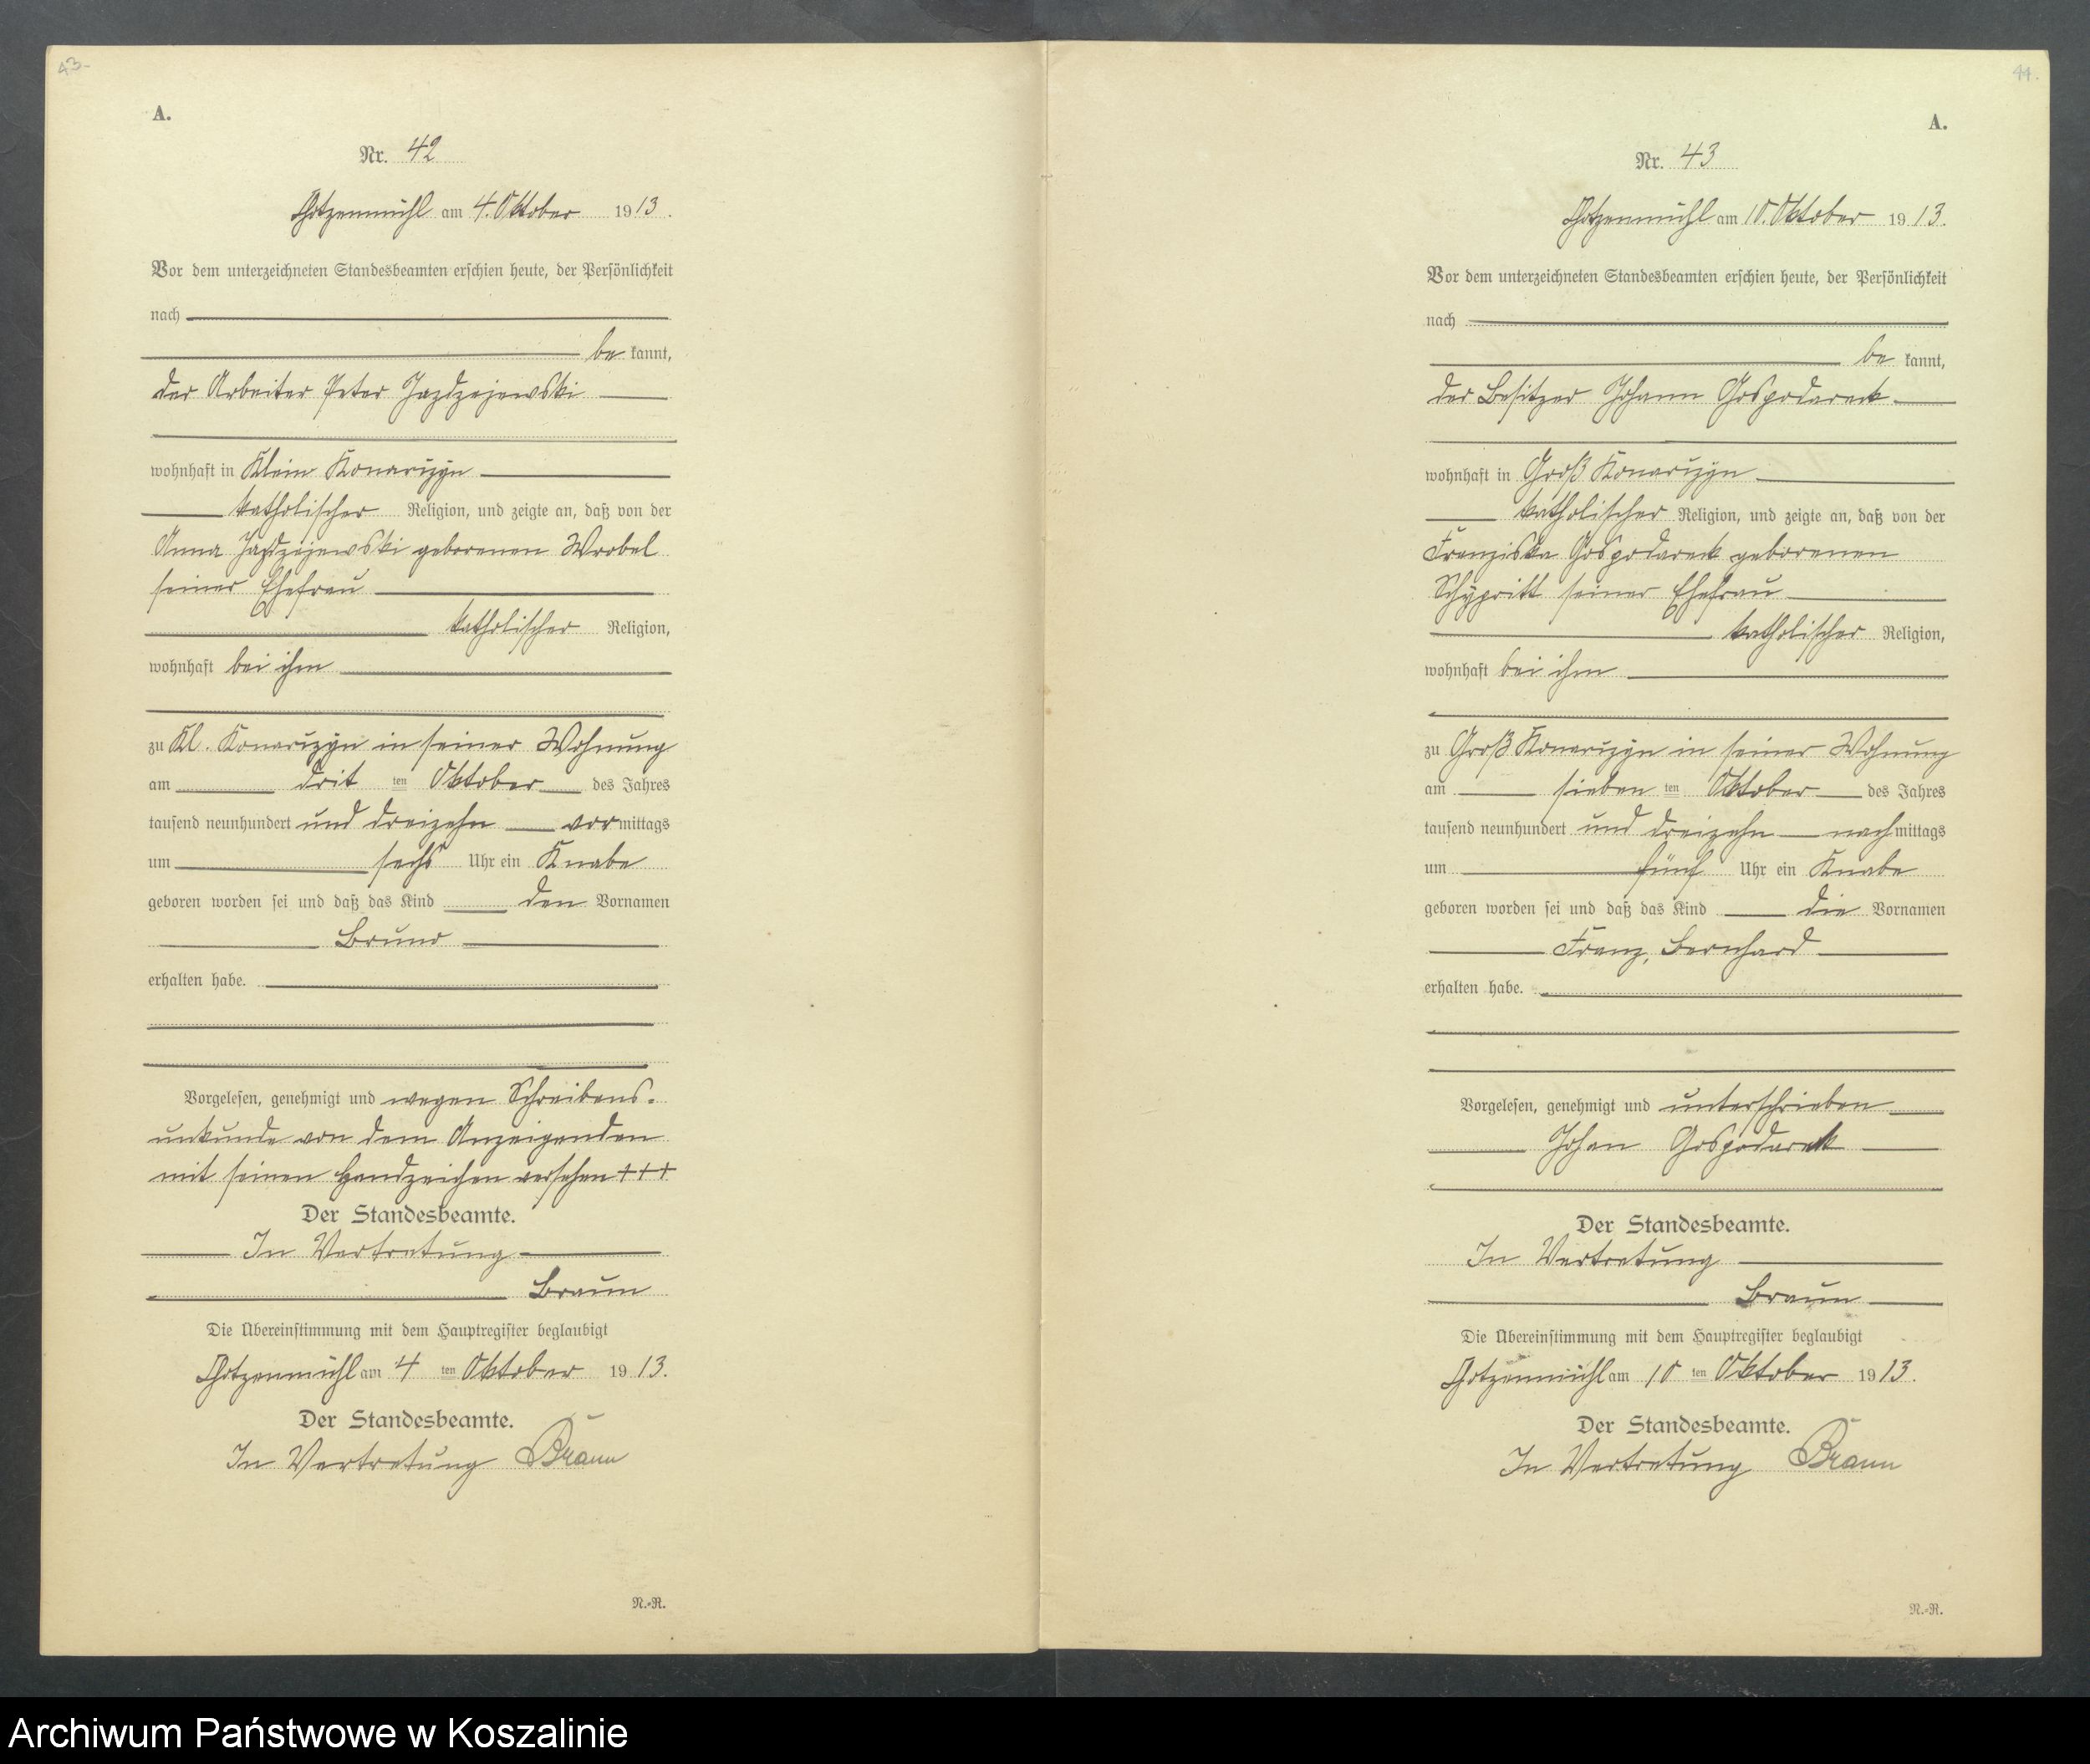 43
A.
Nr. 42
Chotzenmühl am 4. Oktober 1913.
Vor dem unterzeichneten Standesbeamten erschien heute, der Persönlichkeit
nach
be kannt,
der Arbeiter Peter Jazdzejewski
wohnhaft in Klein Konarczyn
katholischer Religion, und zeigte an, daß von der
Anna Jazdzejewski geborenen Wrobel
seiner Ehefrau
katholischer Religion,
wohnhaft bei ihm
zu Kl. Konarczyn in seiner Wohnung
am drit ten Oktober des Jahres
tausend neunhundert und dreizehn vor mittags
um sechs Uhr ein Knabe
geboren worden sei und daß das Kind den Vornamen
Bruno
erhalten habe.
Vorgelesen, genehmigt und wegen Schreibens-
unkunde von dem Anzeigenden
mit seinen Handzeichen versehen +++
Der Standesbeamte.
In Vertretung
Braun
Die Übereinstimmung mit dem Hauptregister beglaubigt
Chotzenmühl am 4 ten Oktober 1913.
Der Standesbeamte.
In Vertretung Braun
N.-R.
44.
A.
Nr. 43
Chotzenmühl am 10. Oktober 1913.
Vor dem unterzeichneten Standesbeamten erschien heute, der Persönlichkeit
nach
be kannt,
der Besitzer Johann Gospodarek
wohnhaft in Groß Konarczyn
katholischer Religion, und zeigte an, daß von der
Franziska Gospodarek geborenen
seiner Ehefrau
katholischer Religion,
wohnhaft bei ihm
zu Groß Konarczyn in seiner Wohnung
am sieben ten Oktober des Jahres
tausend neunhundert und dreizehn nach mittags
um fünf Uhr ein Knabe
geboren worden sei und daß das Kind die Vornamen
Franz, Bernhard
erhalten habe.
Vorgelesen, genehmigt und unterschrieben
Johan Gospodarek
Der Standesbeamte.
In Vertretung
Braun
Die Übereinstimmung mit dem Hauptregister beglaubigt
Chotzenmühl am 10 ten Oktober 1913.
Der Standesbeamte.
In Vertretung Braun
N.-R.
Archiwum Państwowe w Koszalinie